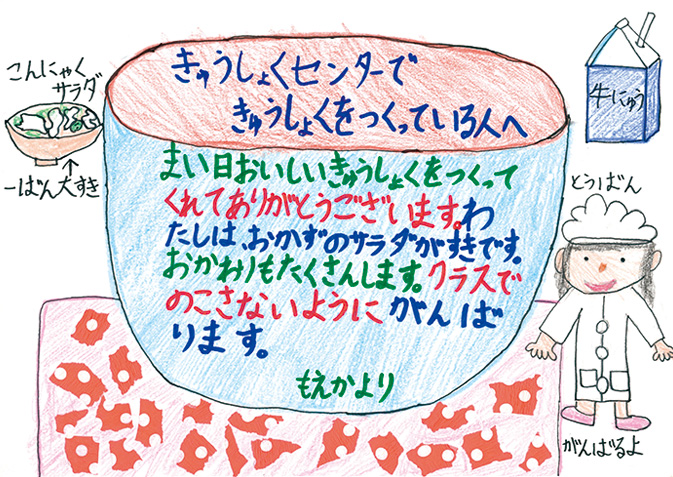 きゅうしょくセンターで
きゅうしょくをつくっている人へ
まい日おいしいきゅうしょくをつくって
くれてありがとうございます。わ
たしは、おかずのサラダがすきです。
おかわりもたくさんします。クラスで
のこさないように がんば
ります。
もえかより
こんにゃく
サラダ
一ばん大すき
牛にゅう
とうばん
がんばるよ